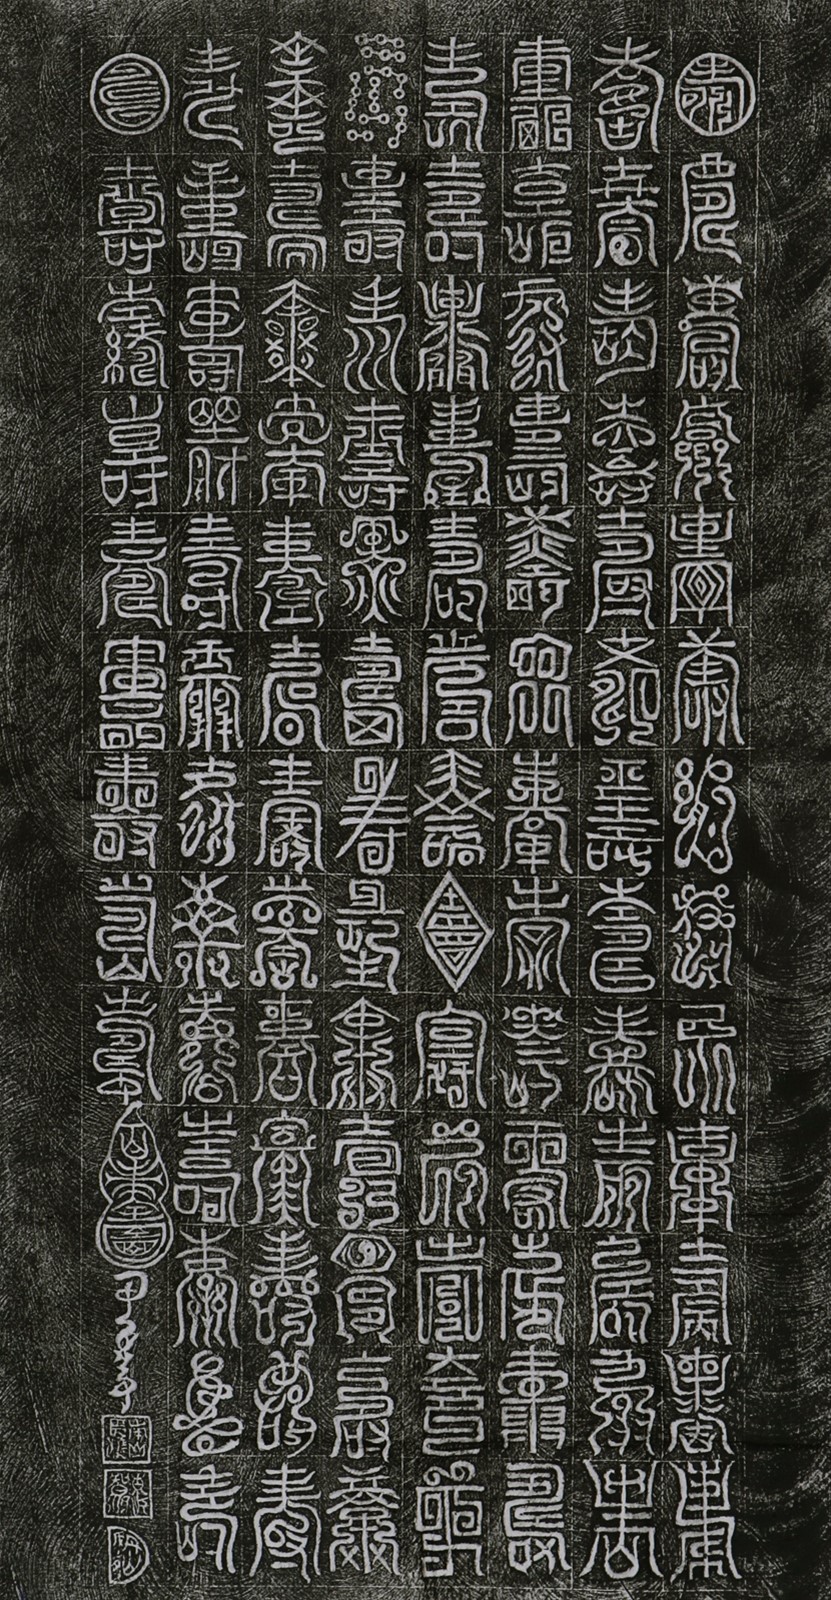 壽壽壽壽壽壽壽壽壽壽壽壽壽
壽壽壽壽壽壽壽壽壽壽壽壽壽
壽壽壽壽壽壽壽壽壽壽壽壽壽
壽壽壽壽壽壽壽壽壽壽壽壽壽
壽壽壽壽壽壽壽壽壽壽壽壽壽
壽壽壽壽壽壽壽壽壽壽壽壽壽
壽壽壽壽壽壽壽壽壽壽壽壽壽
壽壽壽壽壽壽壽壽壽